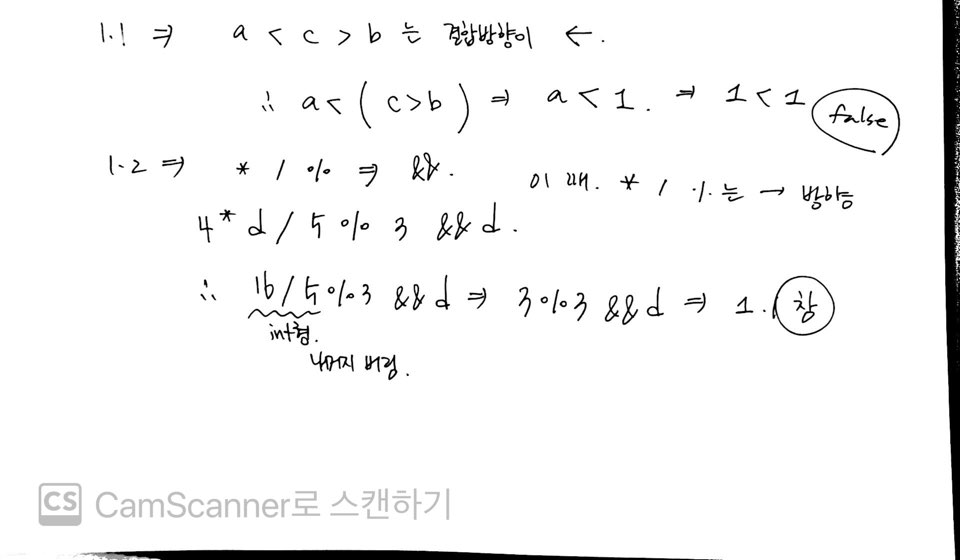 1.1 ⇒ a < c > b 는 결합방향이 ←.
∴ a < ( c > b ) ⇒ a < 1. ⇒ 1 < 1 false
1.2 ⇒ * / % ⇒ &&. 이 때. * / % 는 → 방향
4 * d / 5 % 3 && d.
∴ 16 / 5 % 3 && d ⇒ 3 % 3 && d ⇒ 1. 참
int형.
나머지 버림.
CS CamScanner로 스캔하기